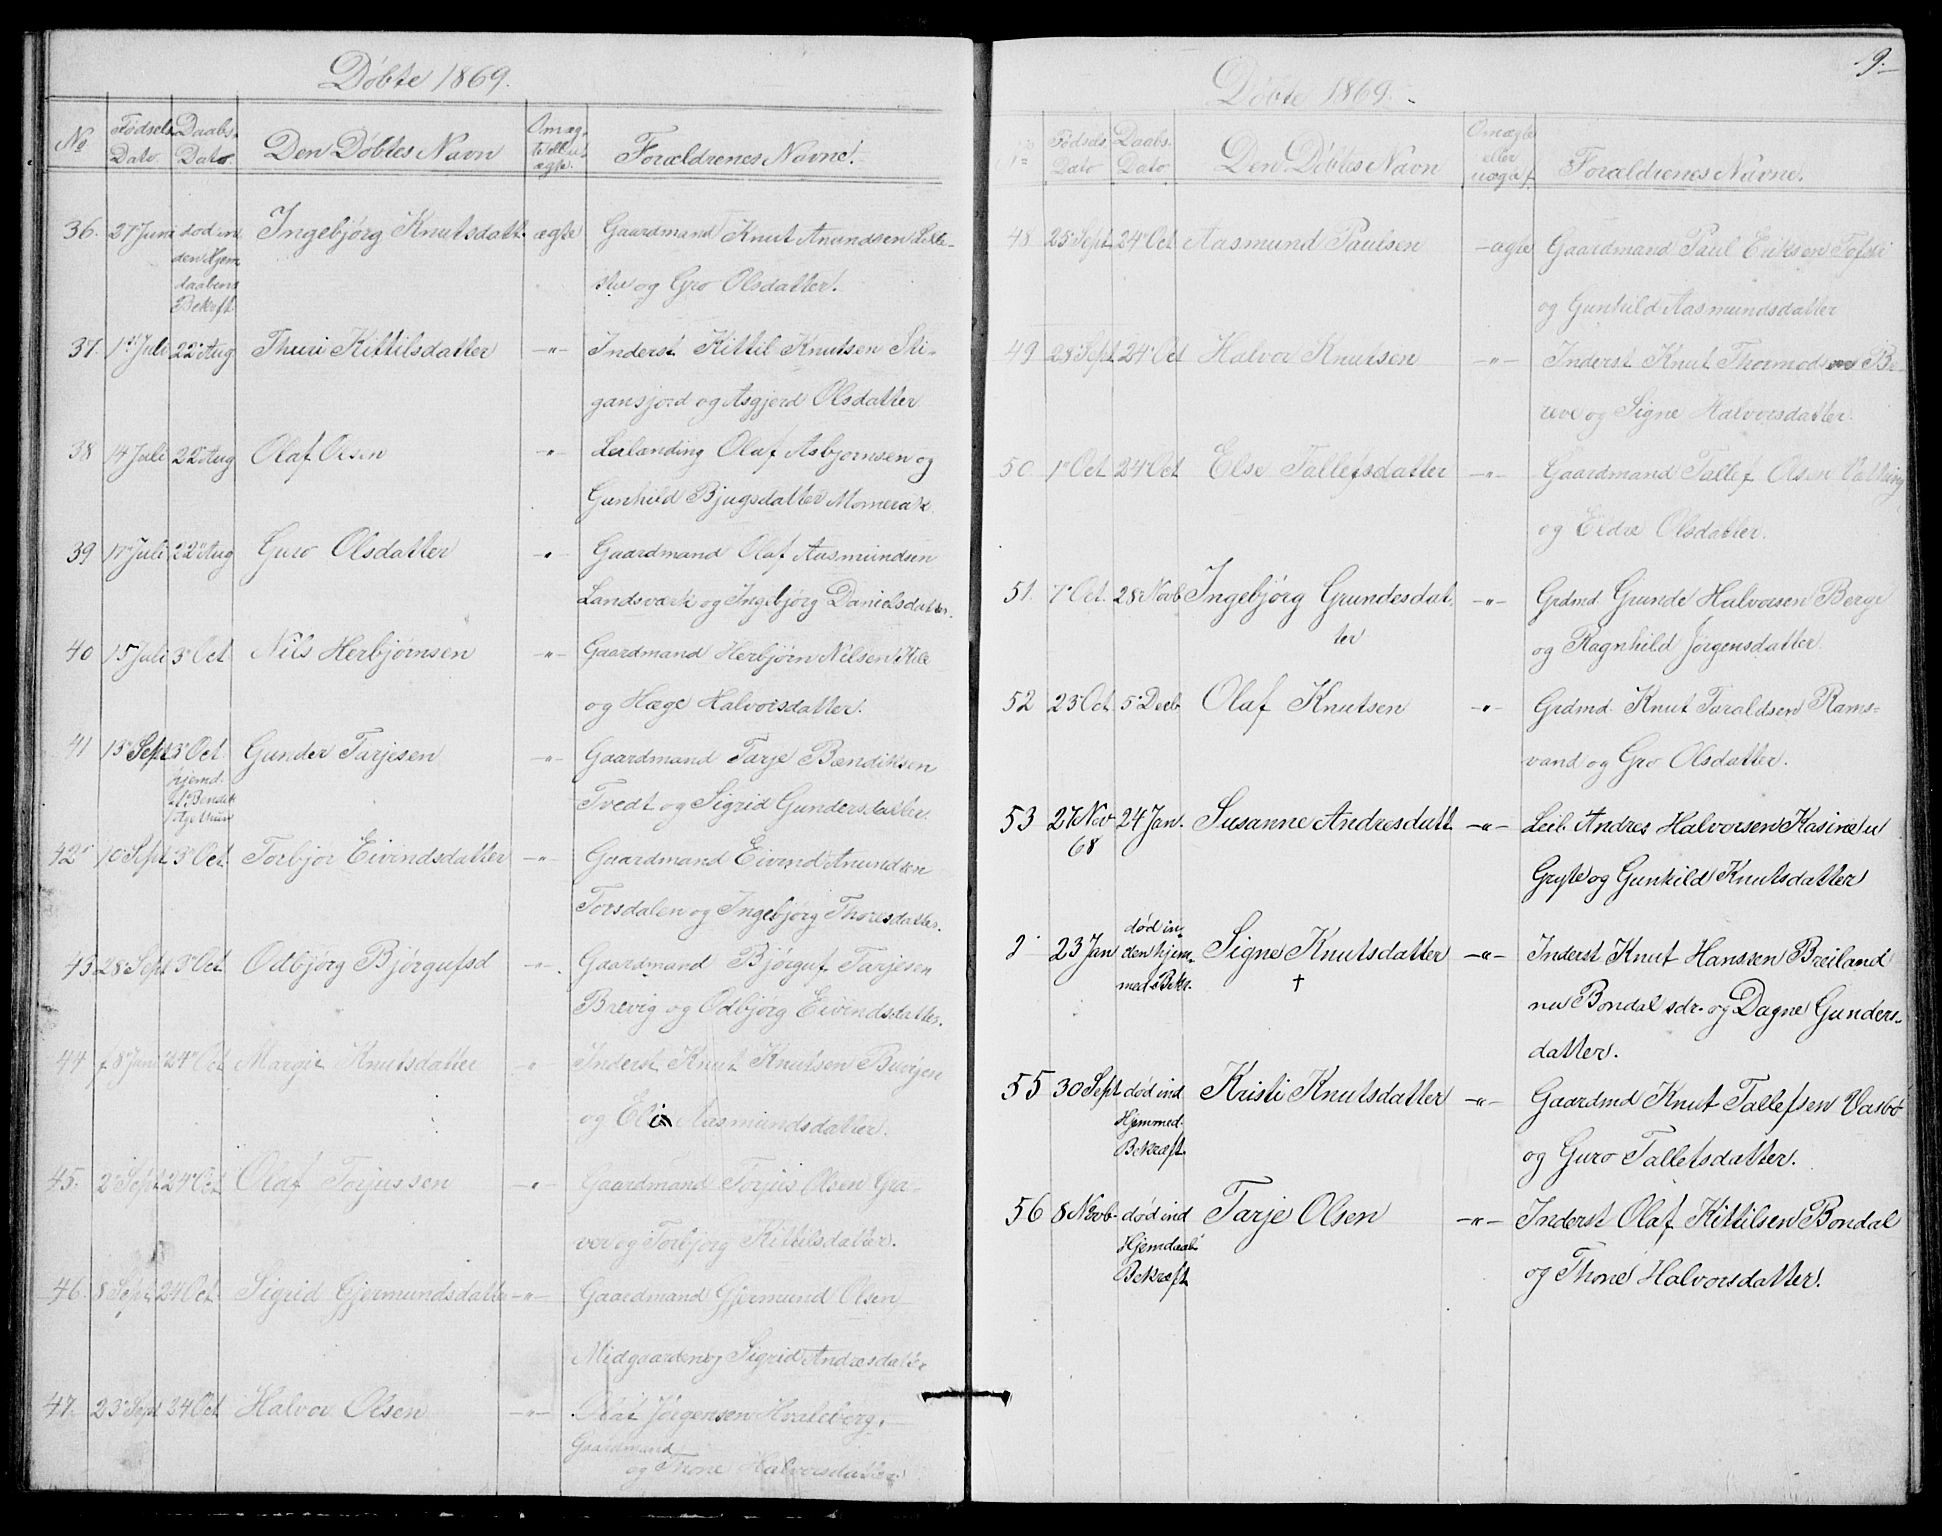 Døbte 1869.
No Fødsels Dato. Daabs. Dato. Den Døbtes Navn Om æg- te ell. u- ægte. Forældrenes Navne.
36. 27 Juni død in Ingebjørg Knutsdatt. ægte Gaardmand Knut Anundsen
den Hjem
daabens stu og Gro Olsdatter.
Bekræft
37. 1st Juli 22 Aug Thuri Kittilsdatter -"- Inderst Kittil Knutsen Sti-
gansjord og Asgjerd Olsdatter
38 14 Juli 22 Aug Olaf Olsen -"- Leilanding Olaf Asbjørnsen og
Gunhild Bjugsdatter Momerak.
39 17 Juli 22 Aug Guro Olsdatter " Gaardmand Olaf Aasmundsen
Landsværk og Ingebjørg Danielsdatter.
40 15 Juli 3 Oct Nils Herbjørnsen -"- Gaardmand Herbjørn Nilsen
og Hæge Halvorsdatter.
41 15 Sept 3 Oct. Gunder Tarjesen -"- Gaardmand Tarje Bændiksen
hjemd.
af Bendik Tvedt og Sigrid Gundersdatter.
42 10 Sept 3 Oct. Torbjør Eivindsdatter -"- Gaardmand Eivind Anundsen
Torsdalen og Ingebjørg Thoresdatter.
43 28 Sept 3 Oct Odbjørg Bjørgufsd -"- Gaardmand Bjørguf Tarjesen
Brevig og Odbjørg Eivindsdatter.
44 8 Juni 24 Oct Margit Knutsdatter " Inderst Knut Knutsen
og Aasmundsdatter.
45. 2 Sept 24 Oct Olaf Torjussen -"- Gaardmand Torjus Olsen Gra-
ver og Torbjørg Kittilsdatter.
46. 8 Sept 24 Oct. Sigrid Gjermundsdatter -"- Gaardmand Gjermund Olsen
Midgaarden og Sigrid Andresdatter
47. 23 Sept 24 Oct Halvor Olsen -"- Olaf Jørgensen Hvaleberg.
Gaardmand
og Thone Halvorsdatter.
9.
Døbte 1869.
Fødsels Dato Daabs. Dato Den Døbtes Navn Om ægte eller uægte Forældrenes Navne.
48 25 Sept 24 Oct Aasmund Paulsen -ægte Gaardmand Paul Eriksen
og Gunhild Aasmundsdatter
49 28 Sept. 24 Oct Halvor Knutsen -"- Inderst Knut Thormodsen Be-
reve og Signe Halvorsdatter.
50 1 Oct 24 Oct Else Tallefsdatter -"- Gaardmand Tallef Olsen
og Eldre Olsdatter.
51. 7 Oct. 28 Novb Ingebjørg Grundesdat- -"- Grdmd. Grunde Halvorsen Berge
ter og Ragnhild Jørgensdatter.
52 23 Oct 5 Decb Olaf Knutsen -"- Grdmd. Knut Taraldsen Rams-
vand og Gro Olsdatter.
53 27 Nov 24 Jan. Susanne Andresdatt. -"- Leil. Andres Halvorsen Kasine u
68 Gryte og Gunhild Knutsdatter
død in-
23 Jan den hjem- Signe Knutsdatter -"- Inderst Knut Hanssen Breiland
med s Bekr. † nu Bondal sdr. og Dagne Gunders-
datter.
55 30 Sept død ind Kristi Knutsdatter -"- Gaardmd Knut Tallefsen Vasbø
Hjemmed.
Bekræft. og Guro Tallefsdatter.
56 8 Novb. død ind Tarje Olsen -"- Inderst Olaf Kittilsen Bondal
Hjemdaab
Bekræft og Thone Halvorsdatter.